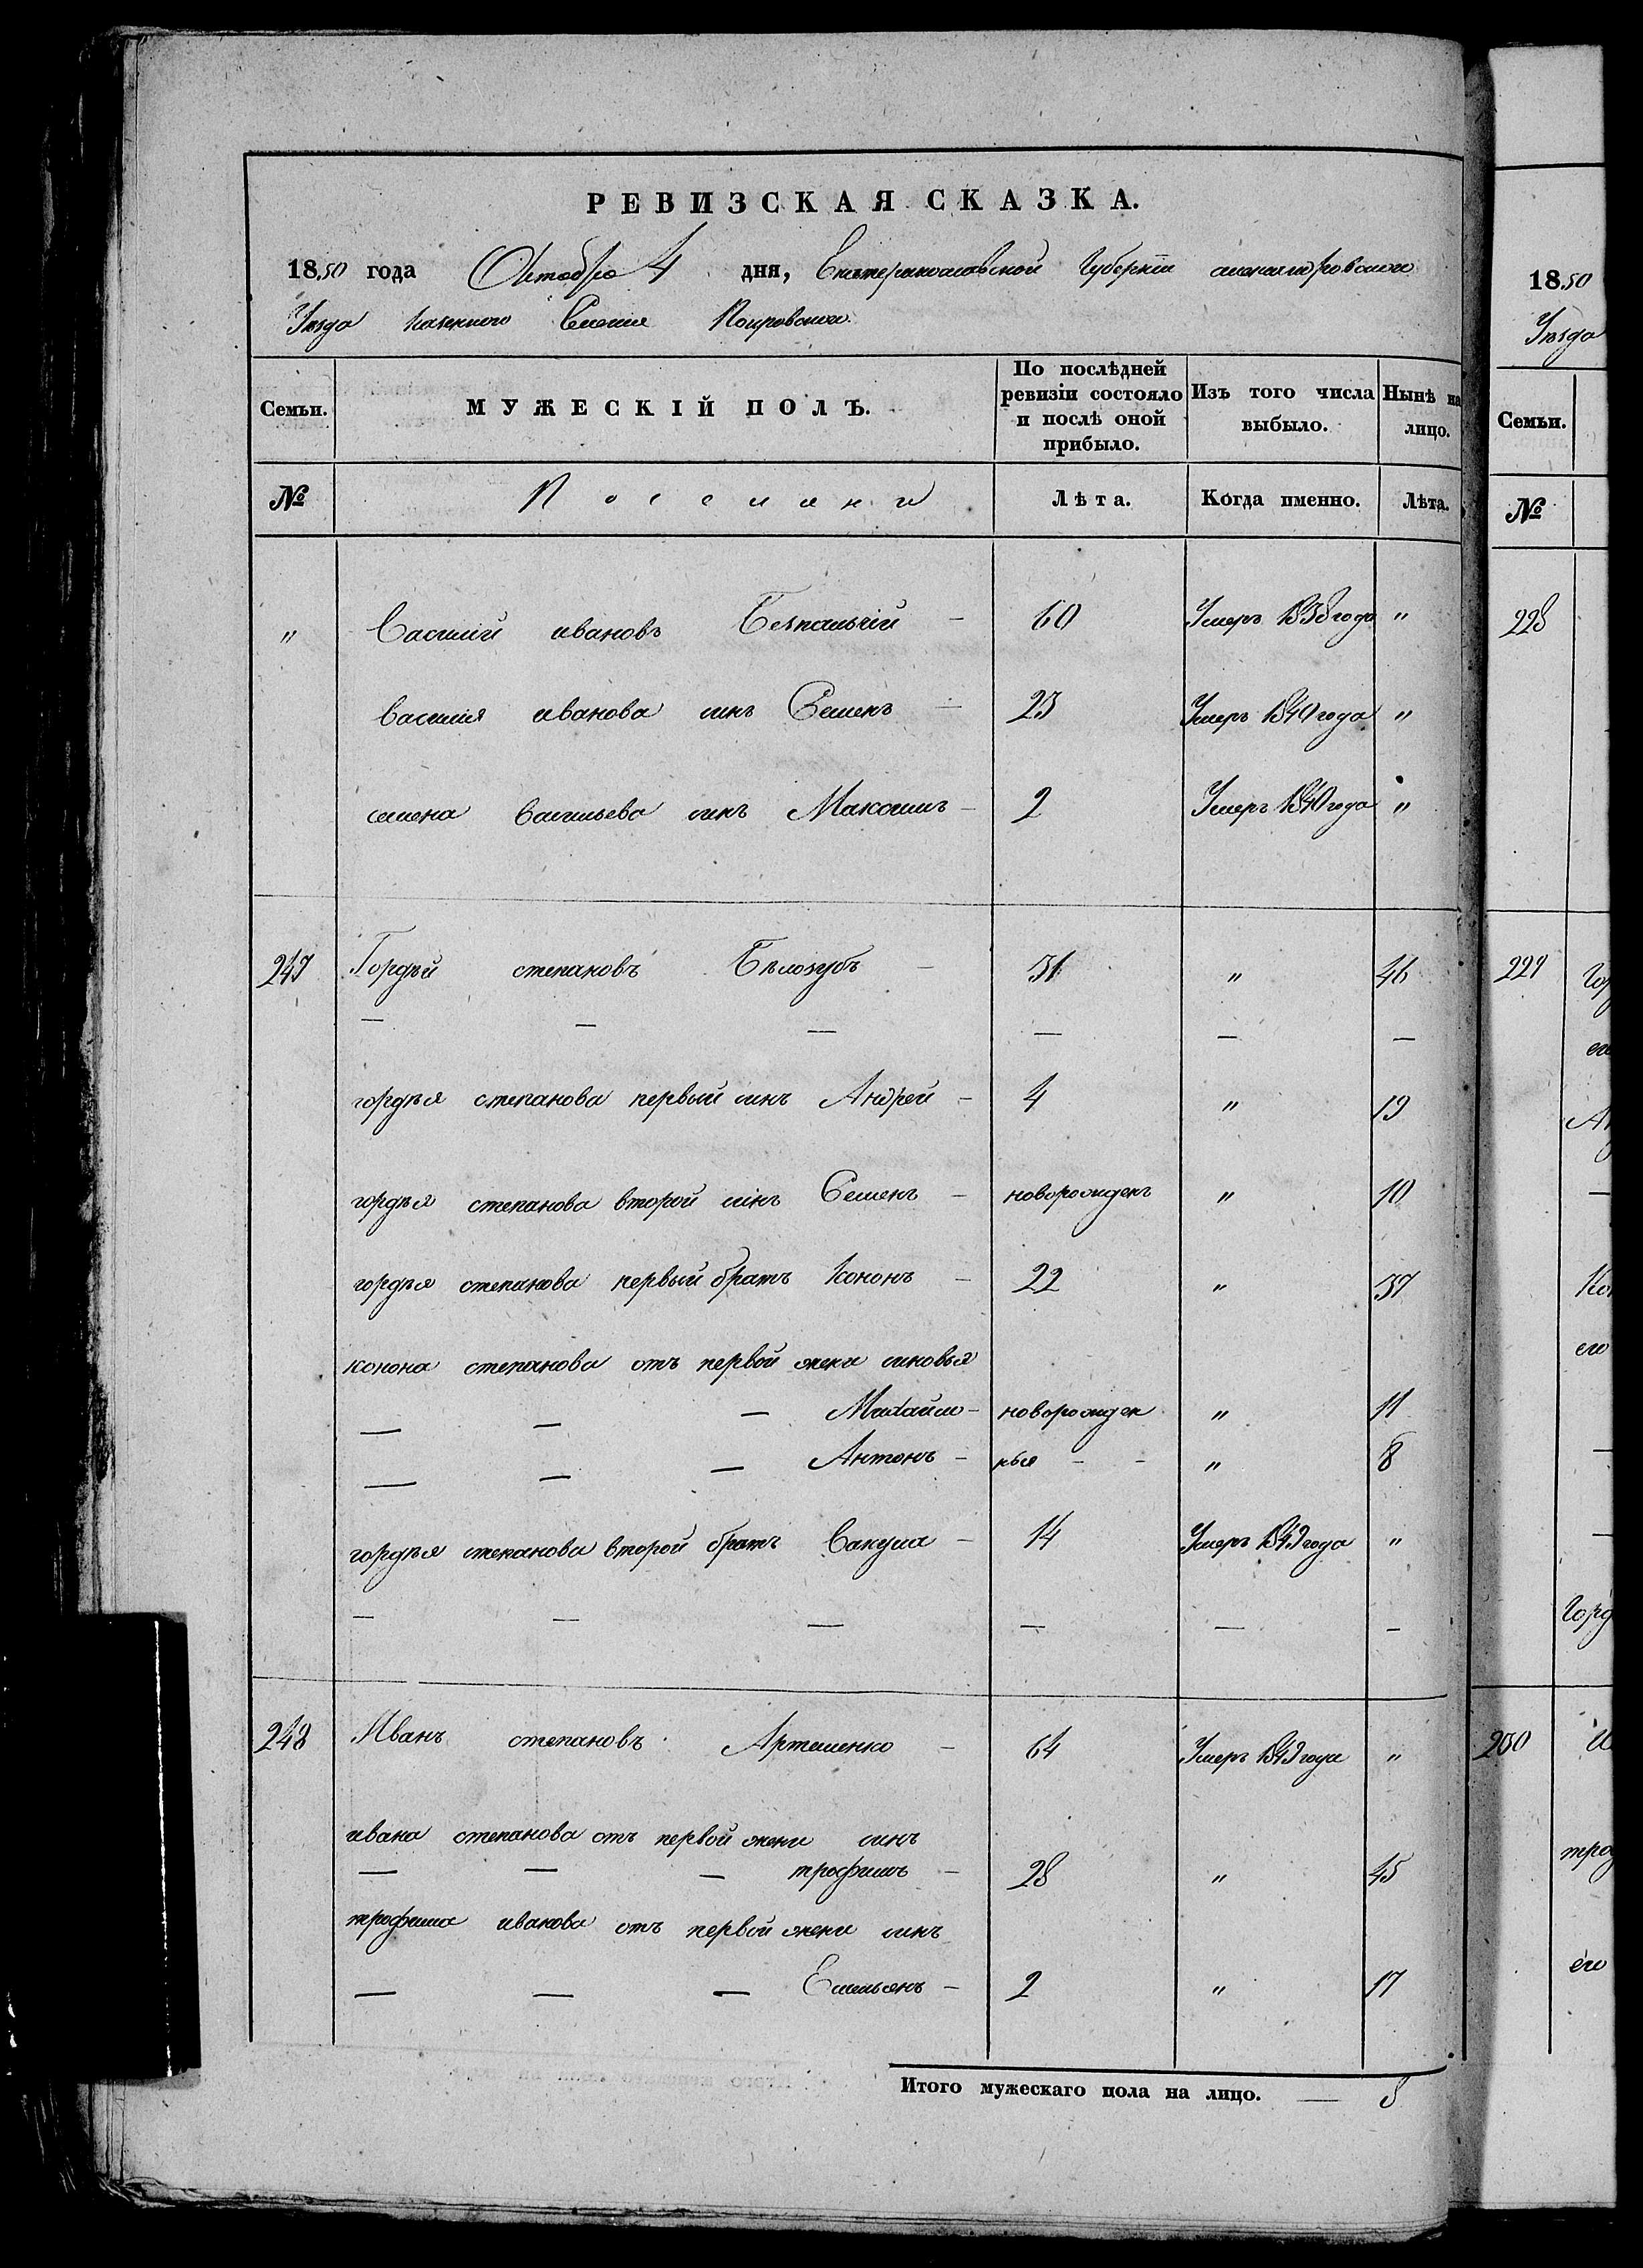 РЕВИЗСКАЯ СКАЗКА.
1850 года Октября 4 дня, Екатеринославской Губерніи александровскаго
Уезда казенного Селения Покровского.
Семьи. МУЖЕСКІЙ ПОЛЪ. По послѣдней ревизіи состояло и послѣ оной прибыло. Изъ того числа выбыло. Нынѣ на лицо.
№ Поселяни Лѣта. Когда именно. Лѣта.
" Василий ивановъ — 60 Умеръ 1838 года "
василия иванова синъ Семенъ — 23 Умеръ 1840 года "
семена Васильева синъ Максимъ — 2 Умеръ 1840 года "
247 Гордѣй степановъ Бѣлозубъ — 31 " 46
— — — — — —
гордѣя степанова первый синъ Андрей — 4 " 19
гордѣя степанова второй синъ Семенъ — новорожденъ " 10
гордѣя степанова первый братъ Кононъ — 22 " 37
конона степанова отъ первой жени синовья
— — — Михайло — новорожден " 11
— — — Антонъ — ныя - - " 8
гордѣя степанова второй братъ Вакула — 14 Умеръ 1849 года "
— — — — — —
248 Иванъ степановъ Артеменко — 64 Умеръ 1849 года "
ивана степанова отъ первой жени синъ
— — — трофимъ — 28 " 45
трофима иванова отъ первой жени синъ
— — — Емильянъ — 2 " 17
Итого мужескаго пола на лицо. — 8
1850
Уезда
Семьи.
№
228
229 Гор
его
Ан
Кон
его
Горд
230 И
троф
его